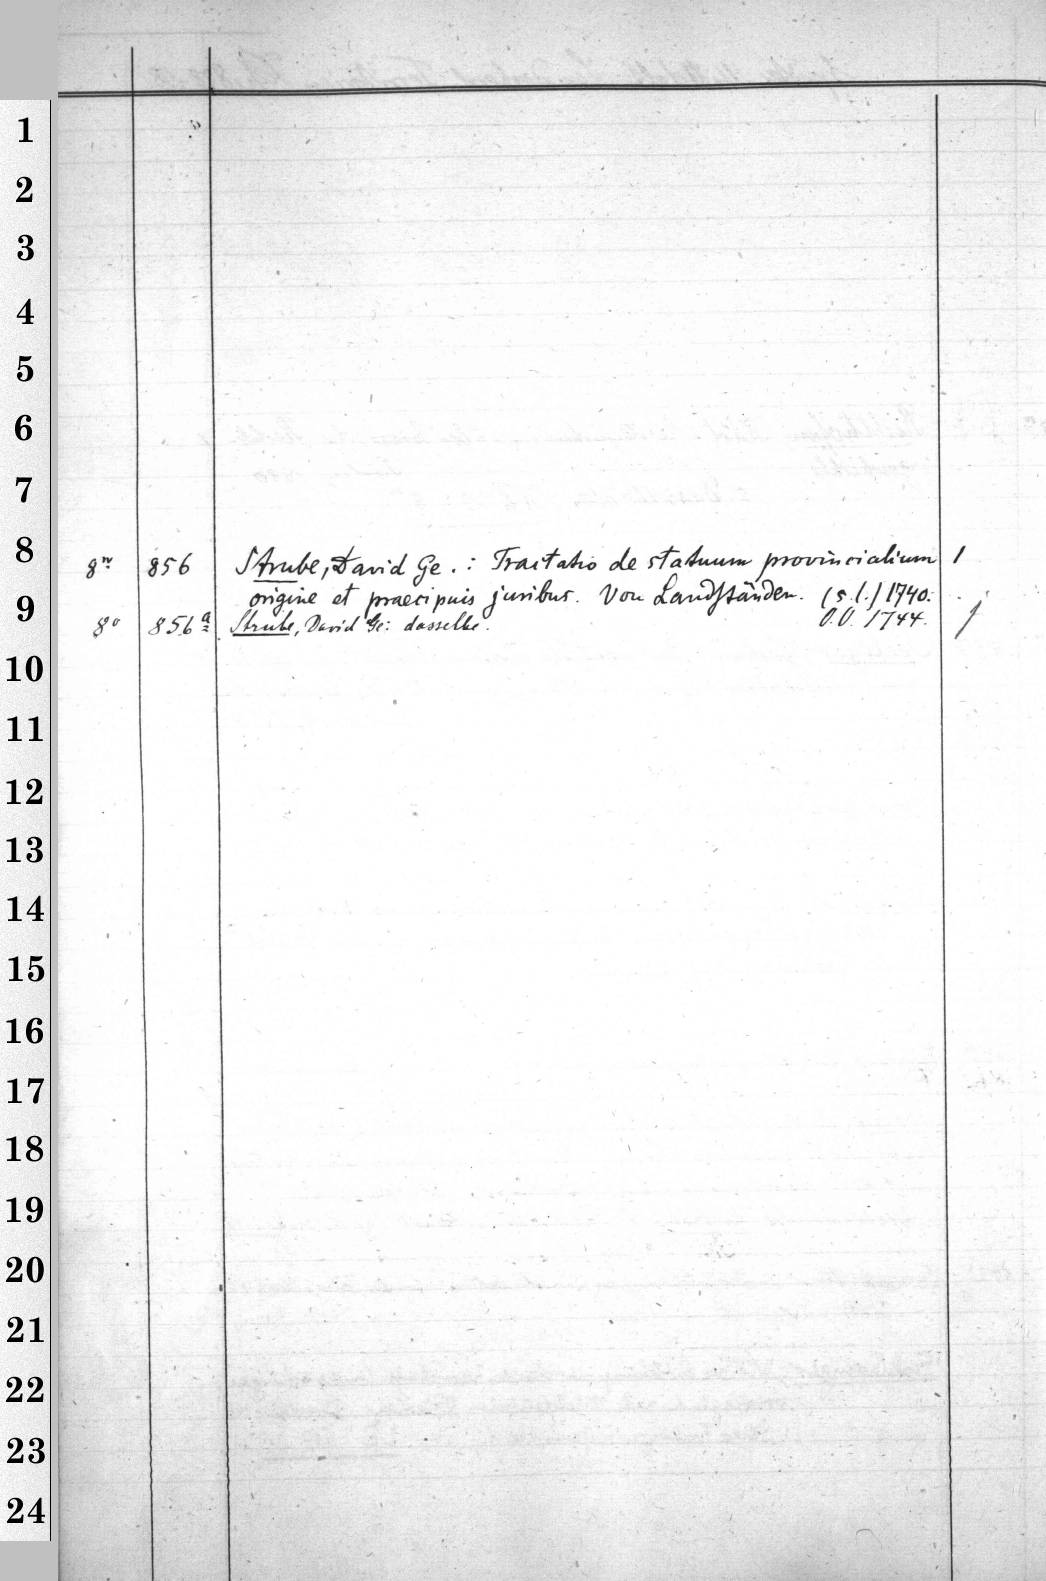 1
2
3
4
5
6
7
8
8º 856 Strube, David Ge.: Tractatio de statuum provincialium 1
9
origine et praecipuis juribus. Von Landständen. (s.l.) 1740.
8º 856a Strube, David Ge: dasselbe. O.O. 1744. 1
10
11
12
13
14
15
16
17
18
19
20
21
22
23
24